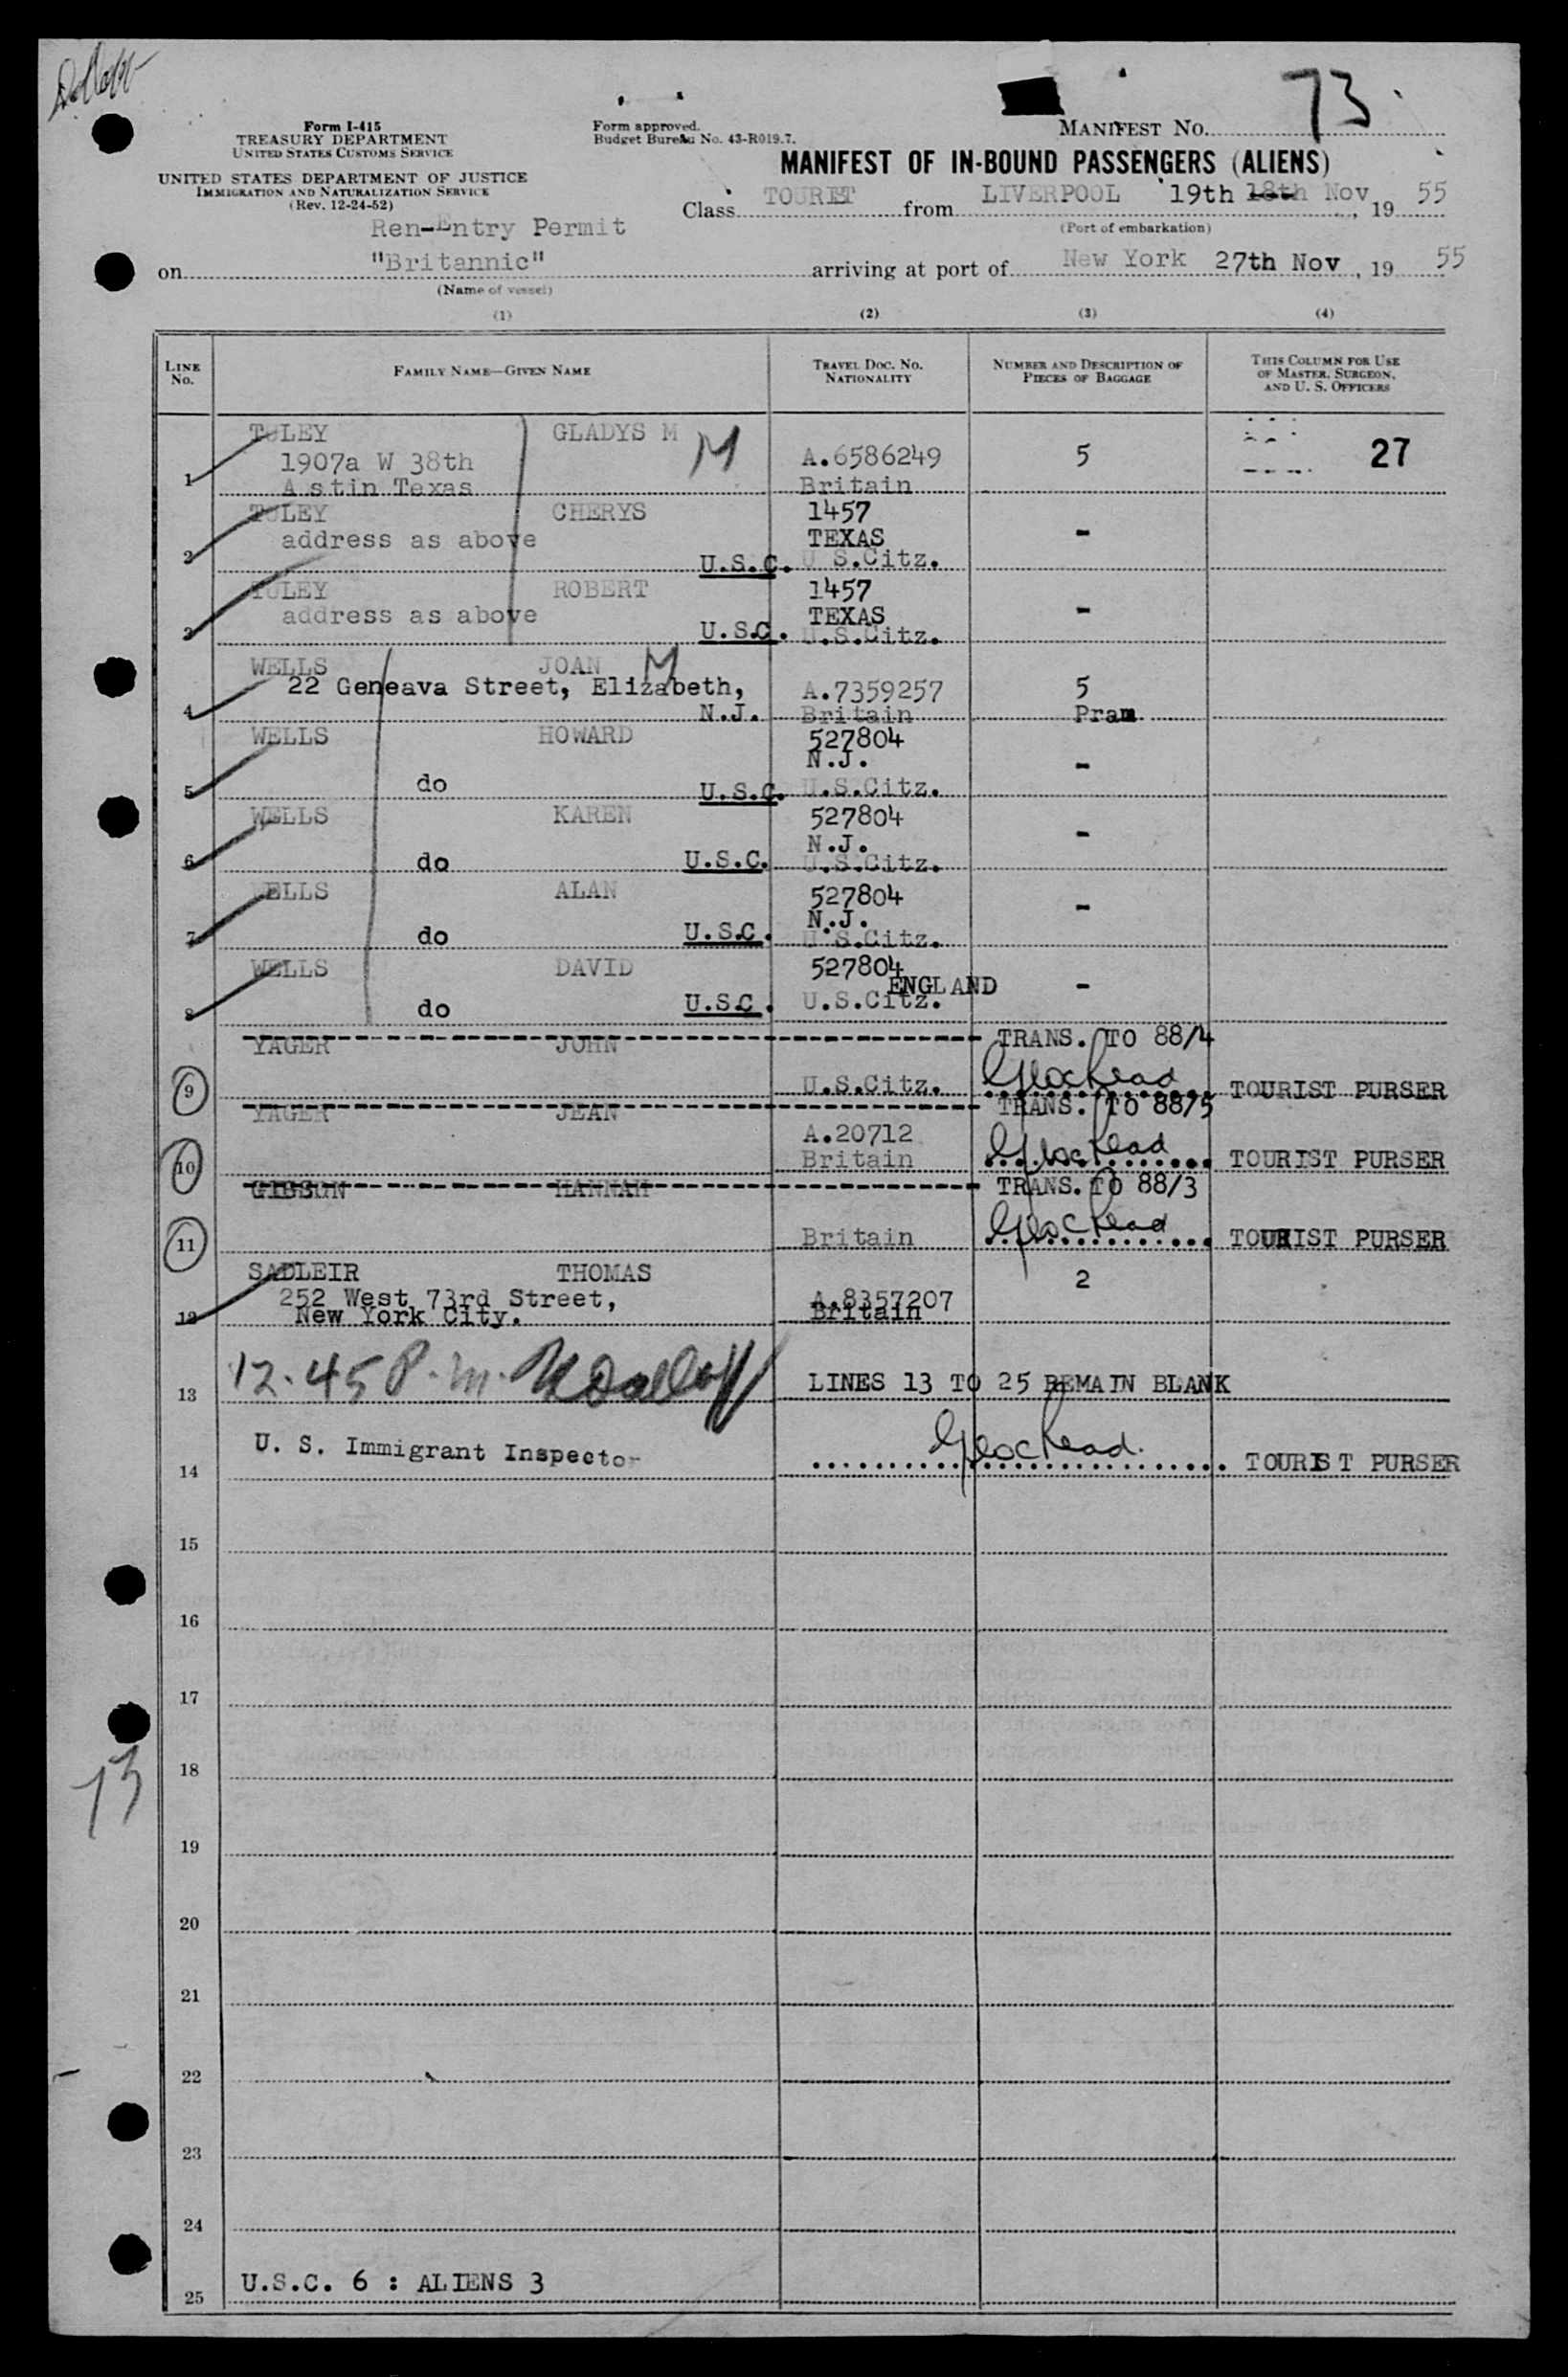 73
Form I-415
TREASURY DEPARTMENT
UNITED STATES CUSTOMS SERVICE
UNITED STATES DEPARTMENT OF JUSTICE
IMMIGRATION AND NATURALIZATION SERVICE
(Rev. 12-24-52)
Form approved.
Budget Bureau No. 43-R019.7.
MANIFEST NO.
MANIFEST OF IN-BOUND PASSENGERS (ALIENS)
Class TOURIST from LIVERPOOL 19th 18th Nov, 19 55
(Port of embarkation)
Ren-Entry Permit
on "Britannic" arriving at port of New York 27th Nov, 19 55
(Name of vessel)
(1) (2) (3) (4)
LINE No. FAMILY NAME—GIVEN NAME TRAVEL DOC. NO. NATIONALITY NUMBER AND DESCRIPTION OF PIECES OF BAGGAGE THIS COLUMN FOR USE OF MASTER, SURGEON, AND U. S. OFFICERS
1 TULEY GLADYS M M A.6586249 5 27
1907a W 38th
A stin Texas Britain
2 TULEY CHERYS 1457 -
address as above TEXAS
U.S.C. U S.Citz.
3 TULEY ROBERT 1457 -
address as above TEXAS
U.S.C. U.S.Citz.
4 WELLS JOAN M
22 Geneava Street, Elizabeth, A.7359257 5
N.J. Britain Pram
5 WELLS HOWARD 527804 -
N.J.
do U.S.C. U.S.Citz.
6 WELLS KAREN 527804 -
N.J.
do U.S.C. U.S.Citz.
7 WELLS ALAN 527804 -
N.J.
do U.S.C. U.S.Citz.
8 WELLS DAVID 527804 -
ENGLAND
do U.S.C. U.S.Citz.
YAGER JOHN TRANS. TO 88/4
9 U.S.Citz. TOURIST PURSER
YAGER JEAN TRANS. TO 88/5
A.20712
10 Britain TOURIST PURSER
GIBSON HANNAH TRANS. TO 88/3
11 Britain TOURIST PURSER
SADLEIR THOMAS 2
252 West 73rd Street, A.8357207
12 New York City. Britain
13 12.45 P.m. LINES 13 TO 25 REMAIN BLANK
U. S. Immigrant Inspector
14 TOURIST PURSER
15
16
17
73
18
19
20
21
22
23
24
25 U.S.C. 6 : ALIENS 3